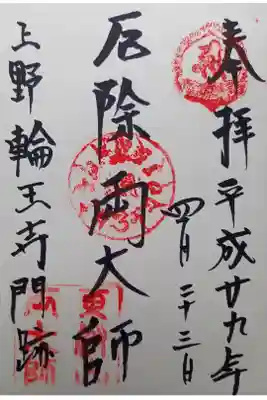 奉拝 平成廿九年
四月二十三日
厄除両大師
上野輪王寺門跡